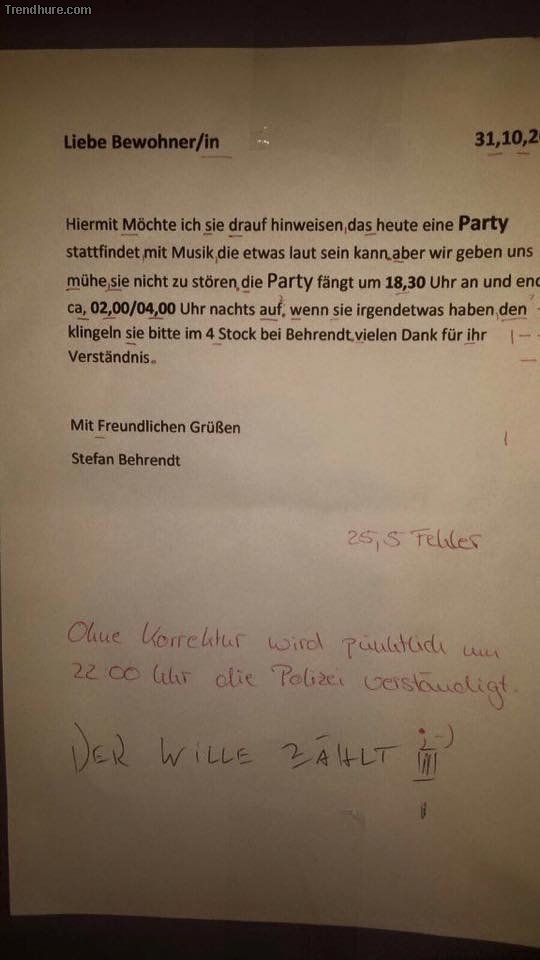 Trendhure.com
Liebe Bewohner/in 31,10,2
Hiermit Möchte ich sie drauf hinweisen,das heute eine Party
stattfindet,mit Musik,die etwas laut sein kann,aber wir geben uns
mühe,sie nicht zu stören,die Party fängt um 18,30 Uhr an und end
ca, 02,00/04,00 Uhr nachts auf, wenn sie irgendetwas haben,den
klingeln sie bitte im 4 Stock bei Behrendt,vielen Dank für ihr
Verständnis.
Mit Freundlichen Grüßen
Stefan Behrendt
25,5 Fehler
Ohne Korrektur wird pünktlich um
22:00 Uhr die Polizei verständigt.
DER WILLE ZÄHLT ;-)